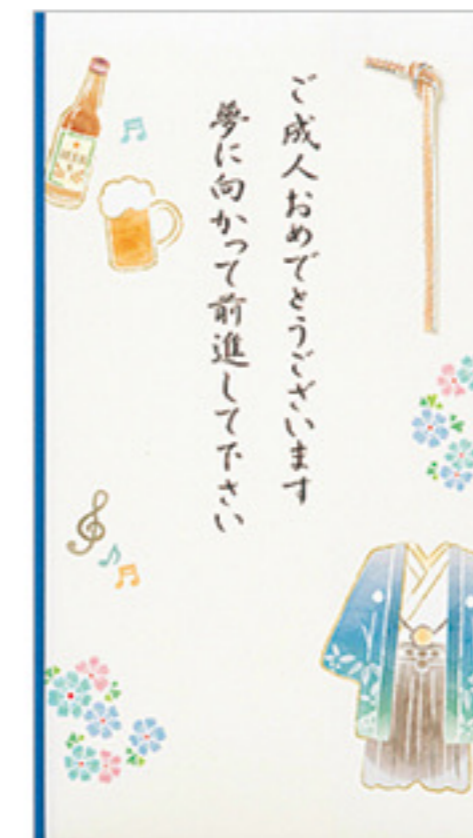 ご成人おめでとうございます
夢に向かって前進して下さい